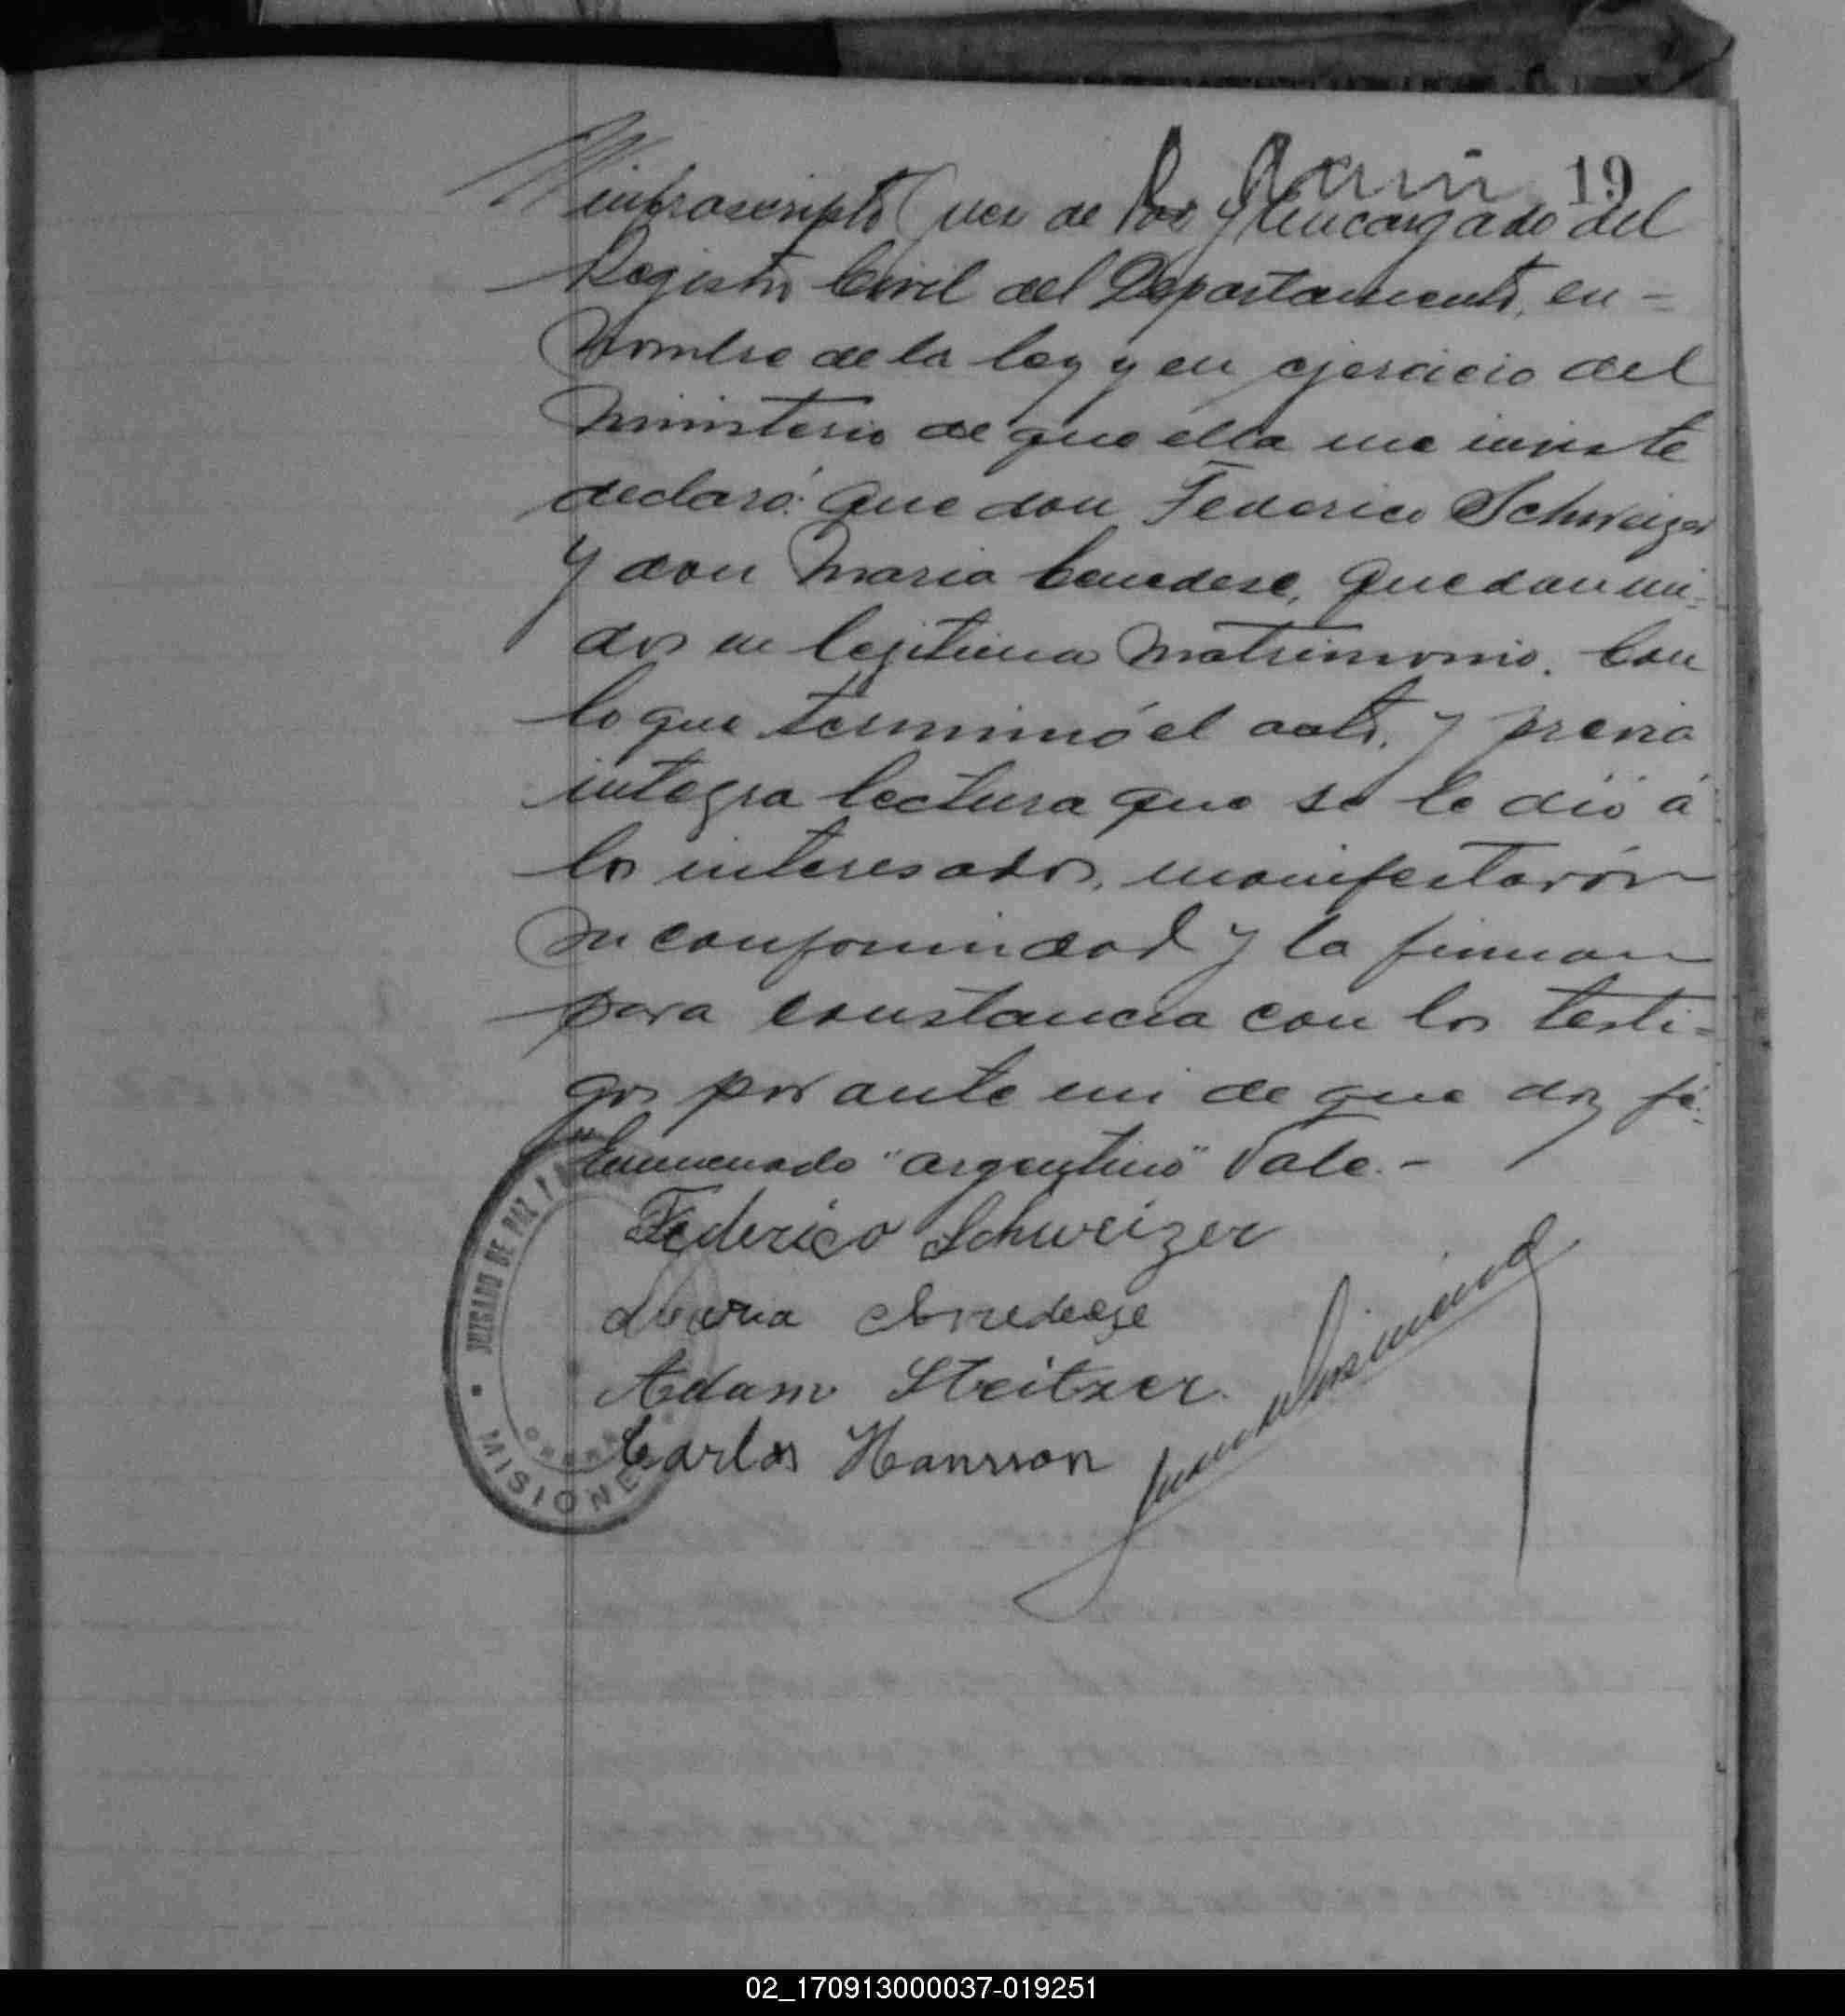 19
infrascripto Juez de Paz y Encargado del
Registro Civil del Departamento, en-
nombre de la ley y en ejercicio del
Ministerio de que ella me inviste
declaró: que don Federico Schweizer
y don Maria Cenedese, quedan uni-
dos en legitima Matrimonio. Con
lo que terminó el acto, y previa
integra lectura que se le dió á
los interesados, manifestarón
su conformidad y la firman
para constancia con los testi-
gos por ante mi de que doy fé.
Enmenado "argentino" Vale.-
Federico Schweizer
Maria Cenedese
Adam Steitzer.
Carlos Hansson
JUZGADO DE PAZ Y
OBERA
MISIONES
02_170913000037-019251